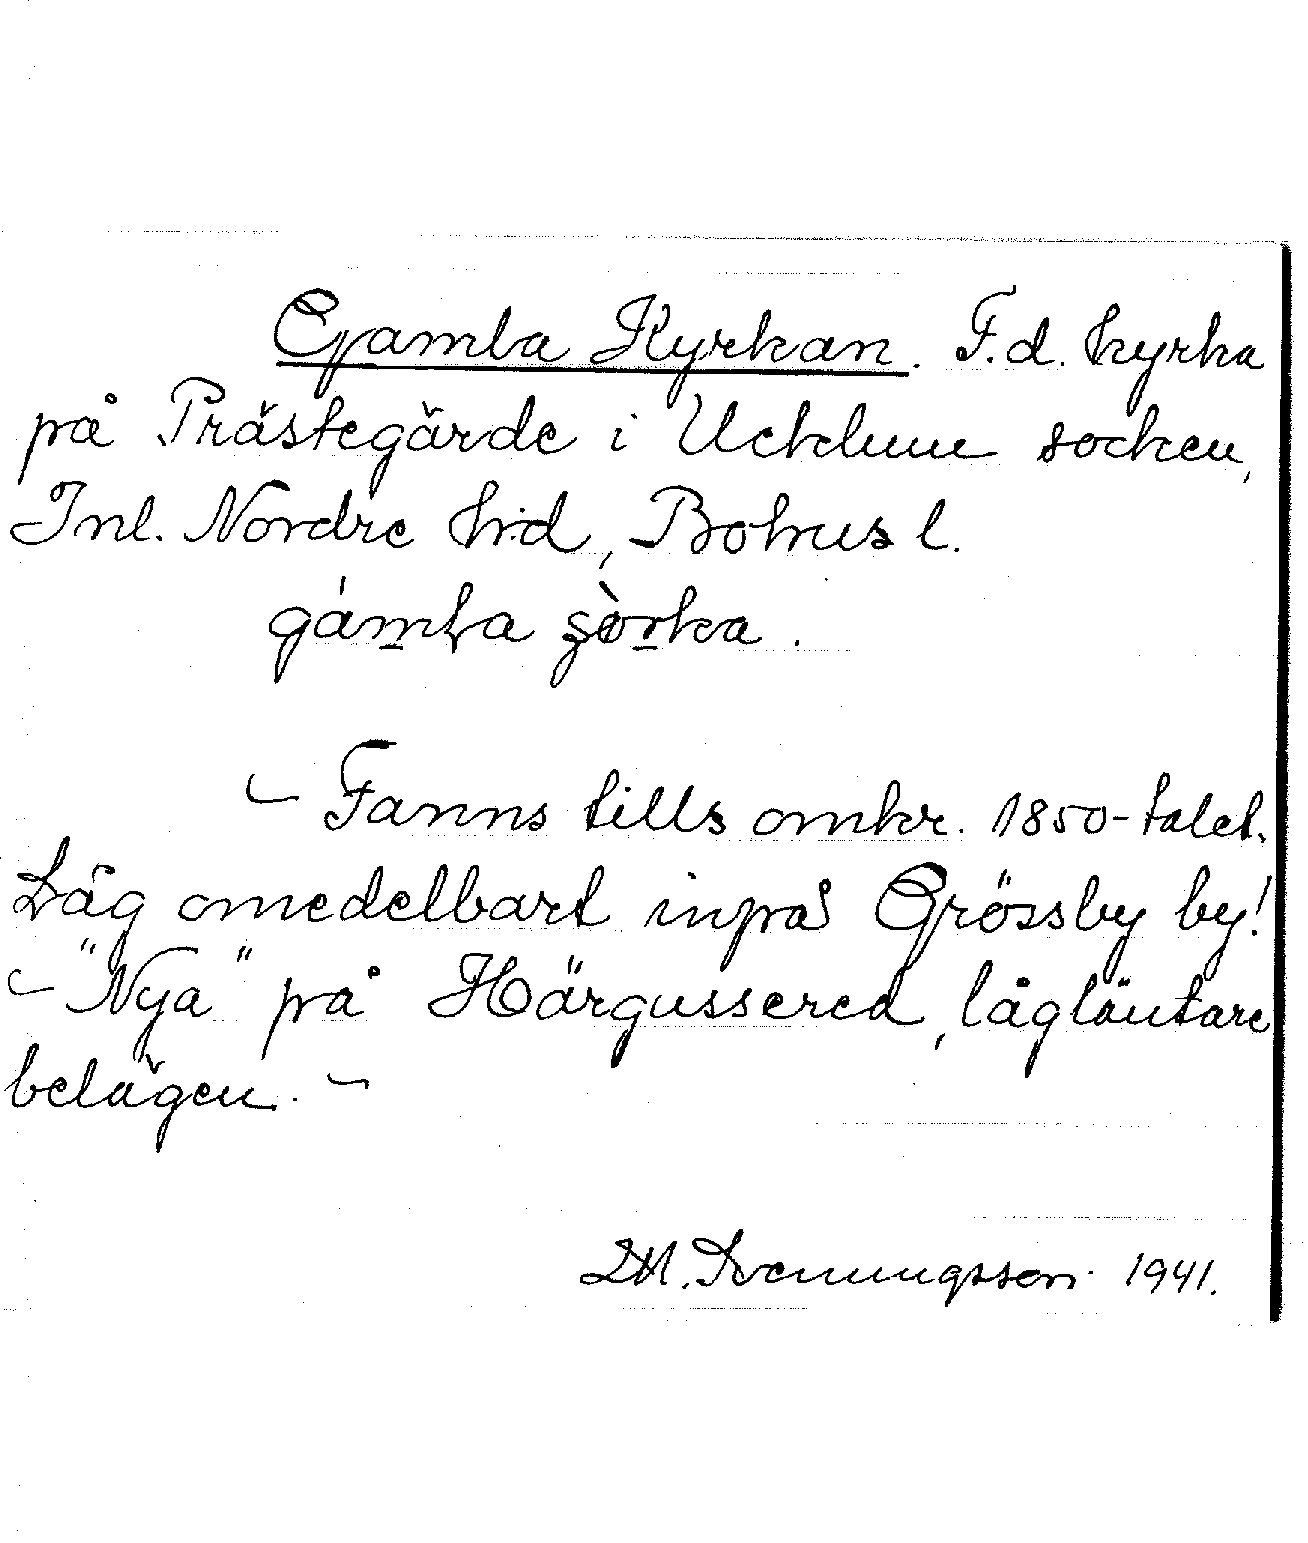 Gamla Kyrkan. F.d. kyrka
på Prästegärde i Ucklum socken,
Inl. Nordre hd, Bohus l.
gamla
– Fanns tills omkr. 1850-talet.
Låg omedelbart inpå Grössby by!
– "Nya" på Härgussered, lågläntare
belägen. –
Svenungsson 1941.